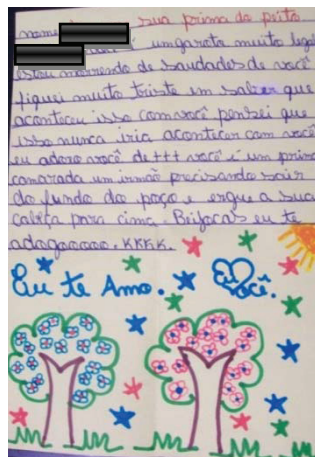 nome sua prima do peito
um garota muito legal
estou morrendo de saudades de você
fiquei muito triste em saber que
aconteceu isso com você pensei que
isso nunca iria acontecer com você
eu adoro você de+++ você é um primo
camarada um irmão precisando sair
do fundo do poço e ergue a sua
cabeça para cima. Brijocas eu te
adogooooo. KKKK.
Eu te Amo. Eu Você.